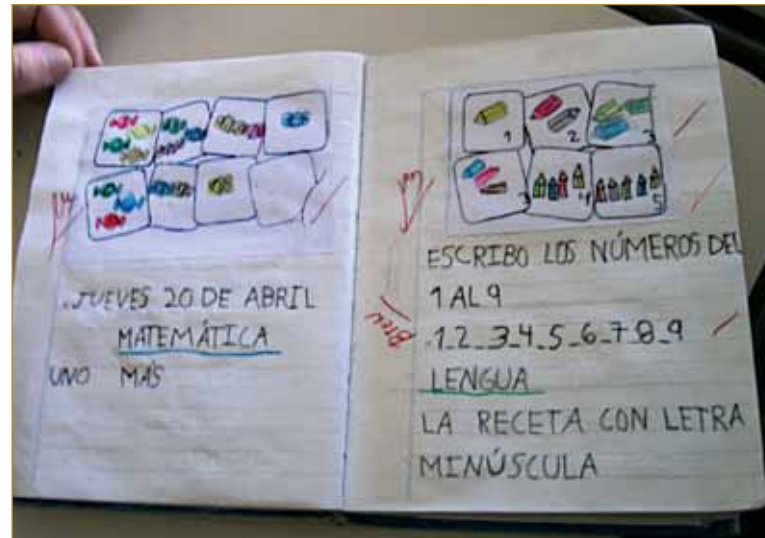 .JUEVES 20 DE ABRIL
MATEMÁTICA
UNO MÁS
1 2 3
3 4 5
ESCRIBO LOS NÚMEROS DEL
1 AL 9
.1_2_3_4_5_6_7_8_9
Bien
LENGUA
LA RECETA CON LETRA
MINÚSCULA